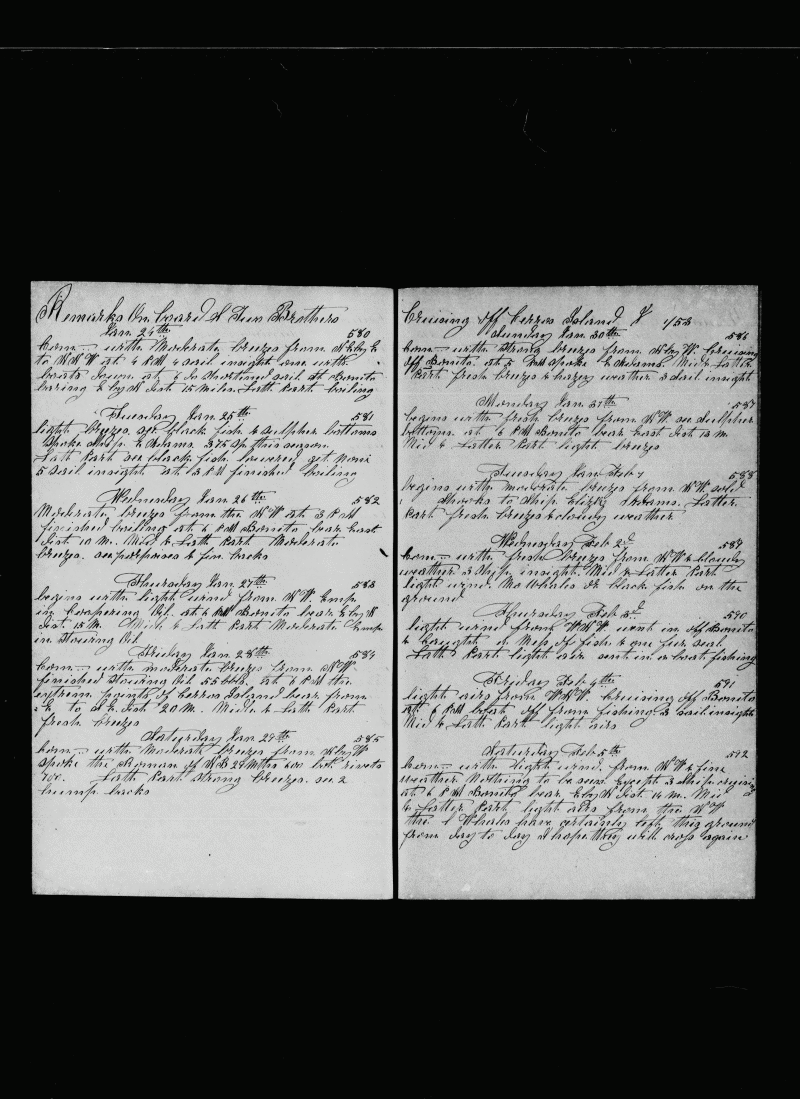 Remarks On board S Two Brothers
Jan 24th 580
Com— with Moderate breezes from N by E
to W N W at 4 P.M 4 sail insight one with
boats down at 6 do shortened sail Bonito
baring E by N Dist 15 miles Latt Part boiling
Tuesday Jan 25th 581
light breeze see black fish & sulpher bottoms
Spoke ship E Adams 375 Sp this season
Latt Part see black fish lowered got none
5 sail insight at 3 P.M finished boiling
Wednesday Jan 26th 582
Moderate breezes from the N W at 3 P M
finished boiling at 6 P.M Bonito bear East
Dist 10 M. Mid & Latt Part Moderate
breezes. see porpoises & fin backs
Thursday Jan 27th 583
begins with light wind from N W. Emp
in Coopering Oil. at 6 P.M Bonito bear E by N
Dist. 15 M. Mid & Latt Part Moderate Emp
in Stowing Oil
Friday Jan 28th 584
Com— with moderate breezes from N W.
finished Stowing Oil 55 bbls. at 6 P.M the
extrem points of Cerros Island bear from
E to S E Dist 20 M. Midle & Latt Part
fresh breezes
Saturday Jan 29th 585
Com— with Moderate breezes from N by W
Spoke the Roman of N B 29 Mths 600 bbls
Latt Part strong breezes. see 2
hump backs
Cruising off Cerros Island 1853
Sunday Jan 30th 586
Com— with strong breezes from N by W. Cruising
off Bonito. at 5 P.M spoke E Adams. Mid & Latter
Part fresh breezes & hazey weather 3 sail insight
Monday Jan 31th 587
begins with fresh breezes from N W. see sulpher
bottoms. at 6 P.M Bonito bear East Dist 12 M.
Mid & Latter Part light breezes
Tuesday Feb 1 588
begins with moderate breezes from N W sold
Shooks to Ship Adams. Latter
Part fresh breezes & cloudy weather
Wednesday Feb 2d 589
Com— with fresh breezes from N W & cloudy
weather 3 Ship insight. Mid & Latter Part
light wind. No Whales or black fish on the
ground
Thursday Feb 3d 590
light wind from W N W went in off Bonito
& Caught a Mess of fish & one fur seal.
Latt Part light airs sent in a boat fishing
Friday Feb 4th 591
light airs from W N W Cruising off Bonito
at 6 P.M boat off from fishing 3 sail insight
Mid & Latt Part light airs
Saturday Feb 5th 592
Com— with light wind from N W & fine
weather Nothing to be seen Except 3 ships cruising
at 6 P.M Bonito bear E by N Dist 14 M. Mid
& Latter Part light airs from the N W
the Whales have certainly left this ground
from day to day I hope they will cross again